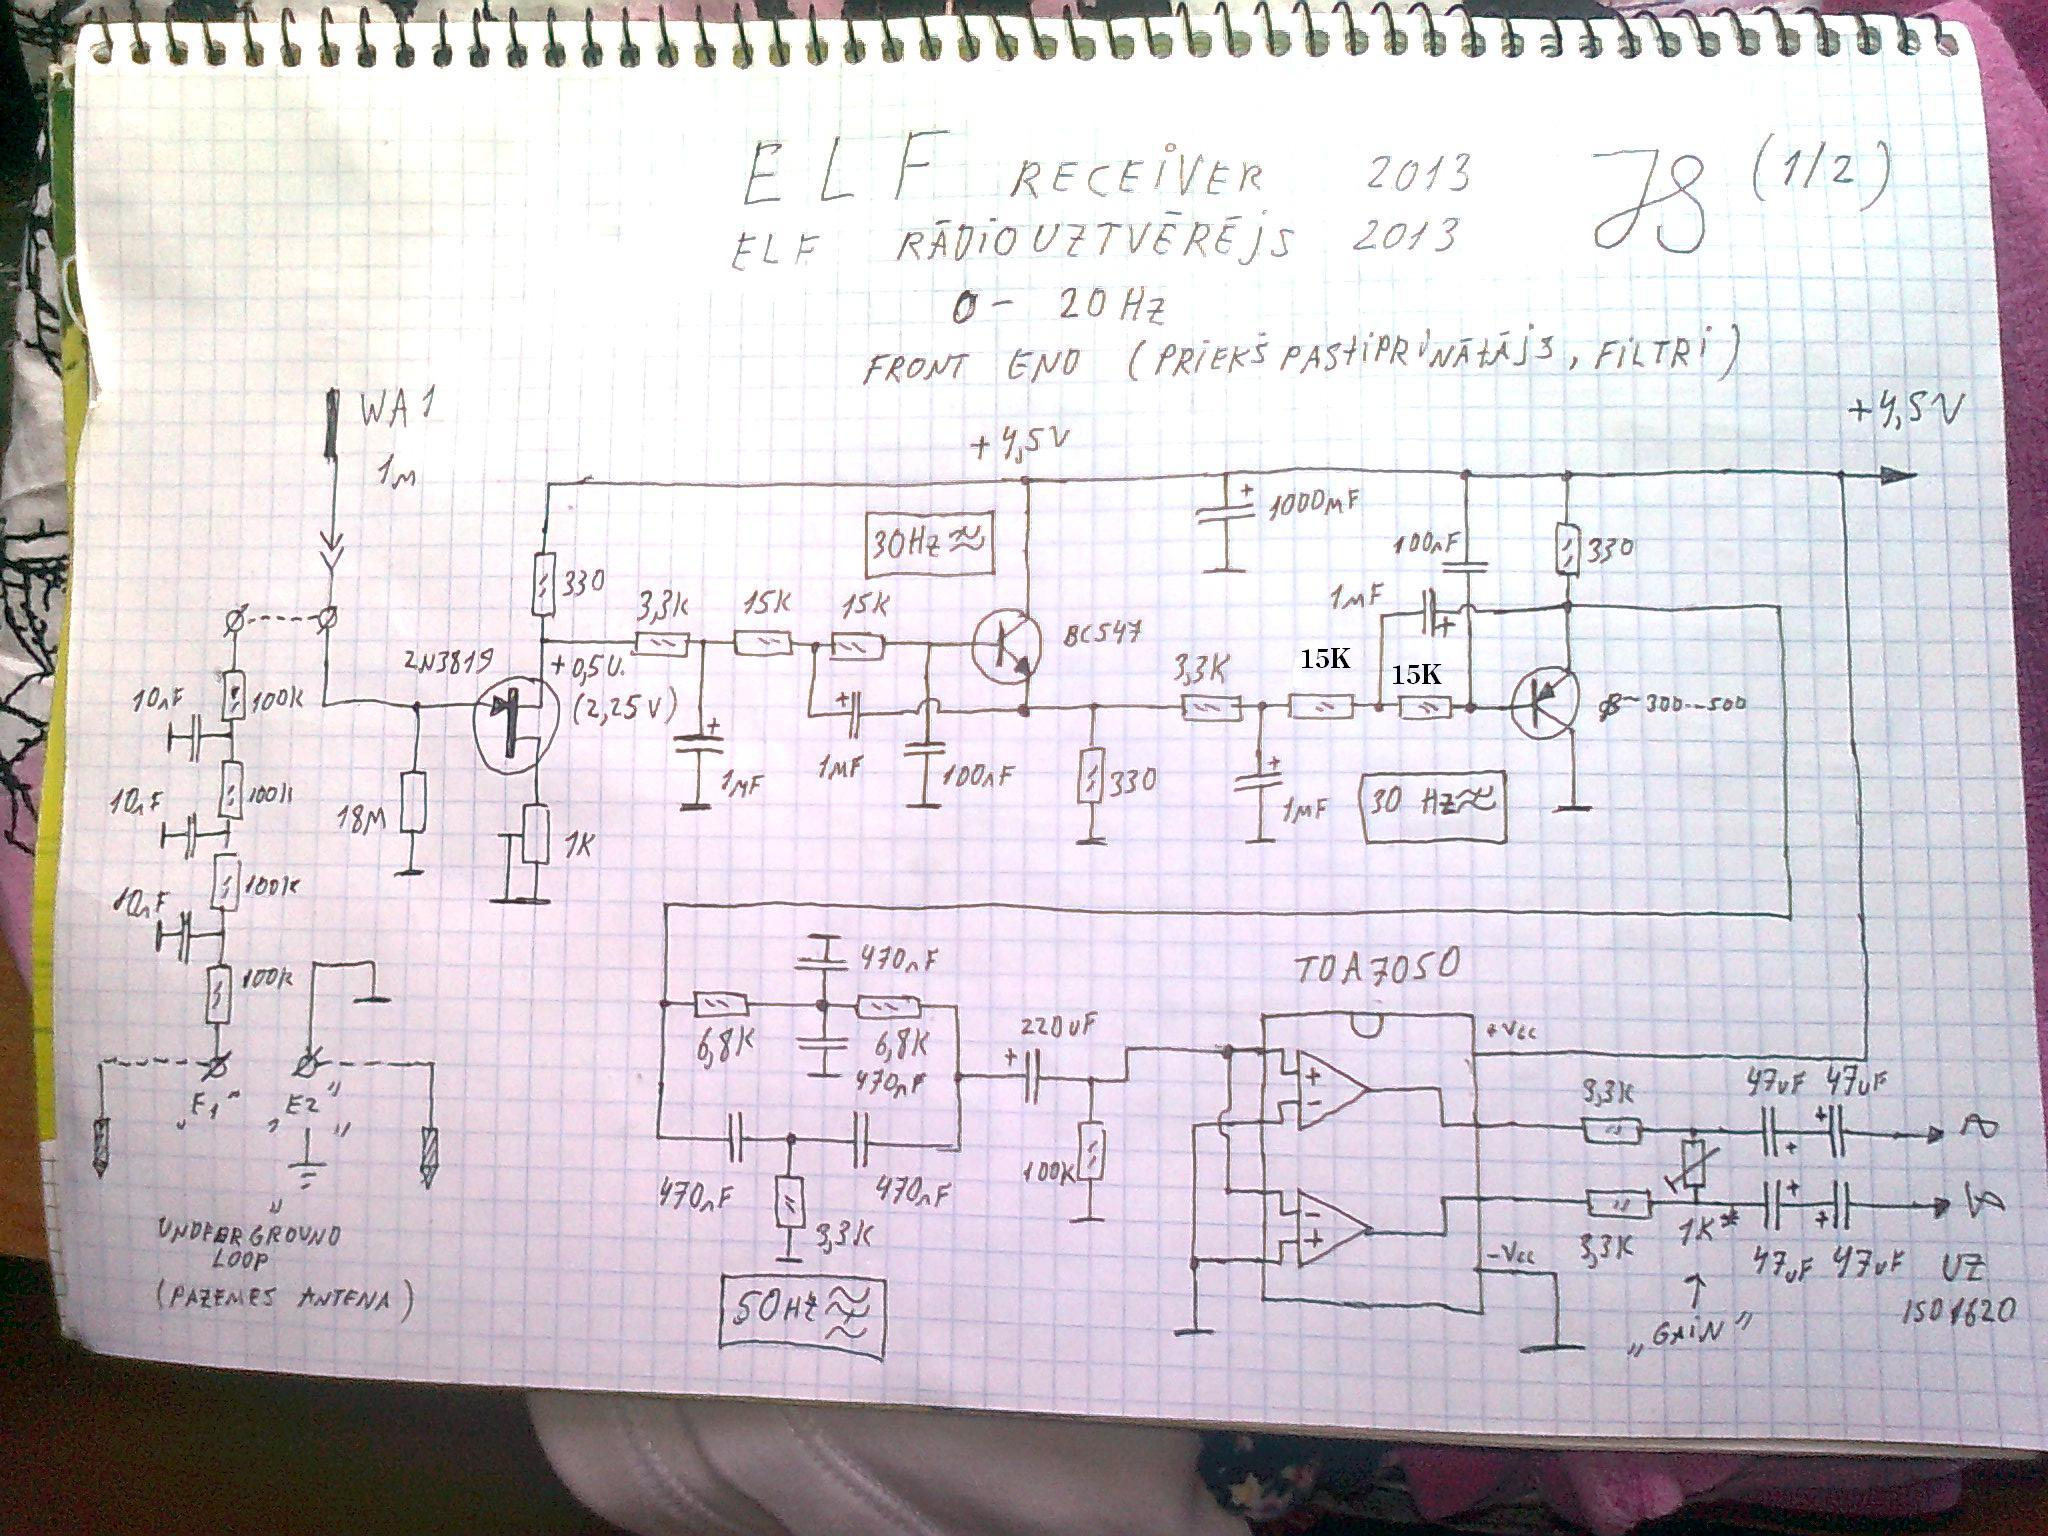 ELF RECEIVER 2013 JS (1/2)
ELF RĀDIOUZTVĒRĒJS 2013
0 - 20 Hz
FRONT END (PRIEKŠPASTIPRINĀTĀJS, FILTRI)
WA1
1M
+4,5V
+4,5V
30Hz
1000MF
100nF
330
330
3,3K
15K
15K
BC547
1MF
2N3819
+0,5V.
(2,25V)
10nF
100K
1MF
1MF
100nF
330
3,3K
15K
15K
1MF
30 Hz
β~300...500
10nF
100K
18M
1K
100K
10nF
100K
"E1"
"E2"
UNDERGROUND
LOOP
(PAZEMES ANTENA)
470nF
6,8K
6,8K
470nF
470nF
470nF
3,3K
50Hz
220uF
100K
TDA7050
+Vcc
+
-
-
+
-Vcc
3,3K
47uF
47uF
3,3K
1K*
47uF
47uF
"GAIN"
UZ
ISD1620